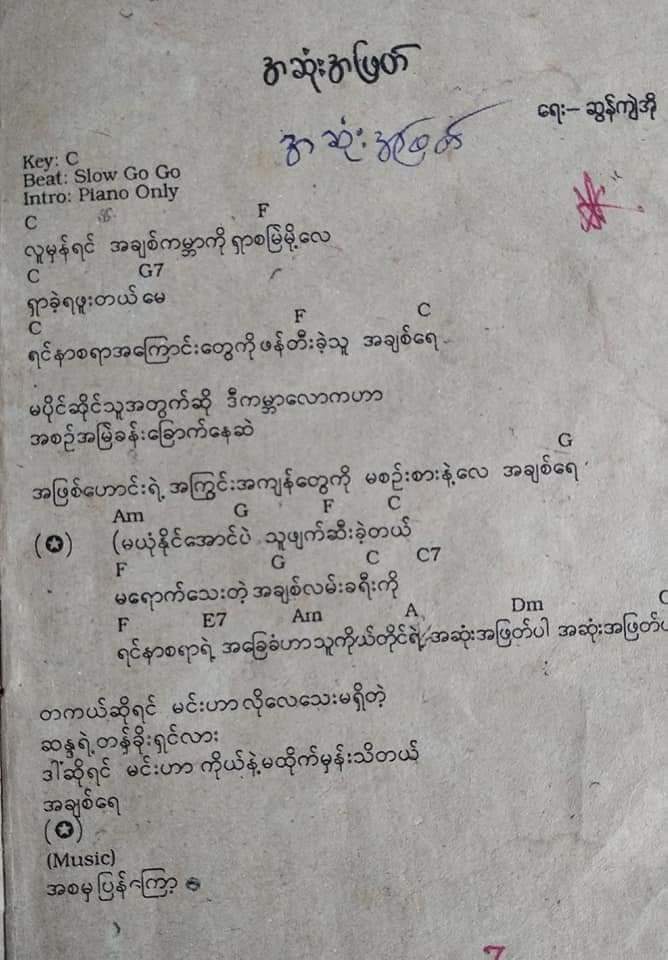 အဆုံးအဖြတ်
ရေး– ဆွန်ကျဲအို
အဆုံးအဖြတ်
Key: C
Beat: Slow Go Go
Intro: Piano Only
C F
လူမှန်ရင် အချစ်ကမ္ဘာကို ရှာစမြဲမို့လေ
C G7
ရှာခဲ့ရဖူးတယ် မေ
C F C
ရင်နာစရာအကြောင်းတွေကို ဖန်တီးခဲ့သူ အချစ်ရေ
မပိုင်ဆိုင်သူအတွက်ဆို ဒီကမ္ဘာလောကဟာ
အစဉ်အမြဲခန်းခြောက်နေဆဲ
G
အဖြစ်ဟောင်းရဲ့ အကြွင်းအကျန်တွေကို မစဉ်းစားနဲ့လေ အချစ်ရေ
Am G F C
(✪) (မယုံနိုင်အောင်ပဲ သူဖျက်ဆီးခဲ့တယ်
F G C C7
မရောက်သေးတဲ့ အချစ်လမ်းခရီးကို
F E7 Am A Dm
ရင်နာစရာရဲ့ အခြေခံဟာ သူကိုယ်တိုင်ရဲ့ အဆုံးအဖြတ်ပါ အဆုံးအဖြတ်ပ
တကယ်ဆိုရင် မင်းဟာ လိုလေသေးမရှိတဲ့
ဆန္ဒရဲ့တန်ခိုးရှင်လား
ဒါဆိုရင် မင်းဟာ ကိုယ်နဲ့မထိုက်မှန်းသိတယ်
အချစ်ရေ
(✪)
(Music)
အစမှ ပြန်ကြော့